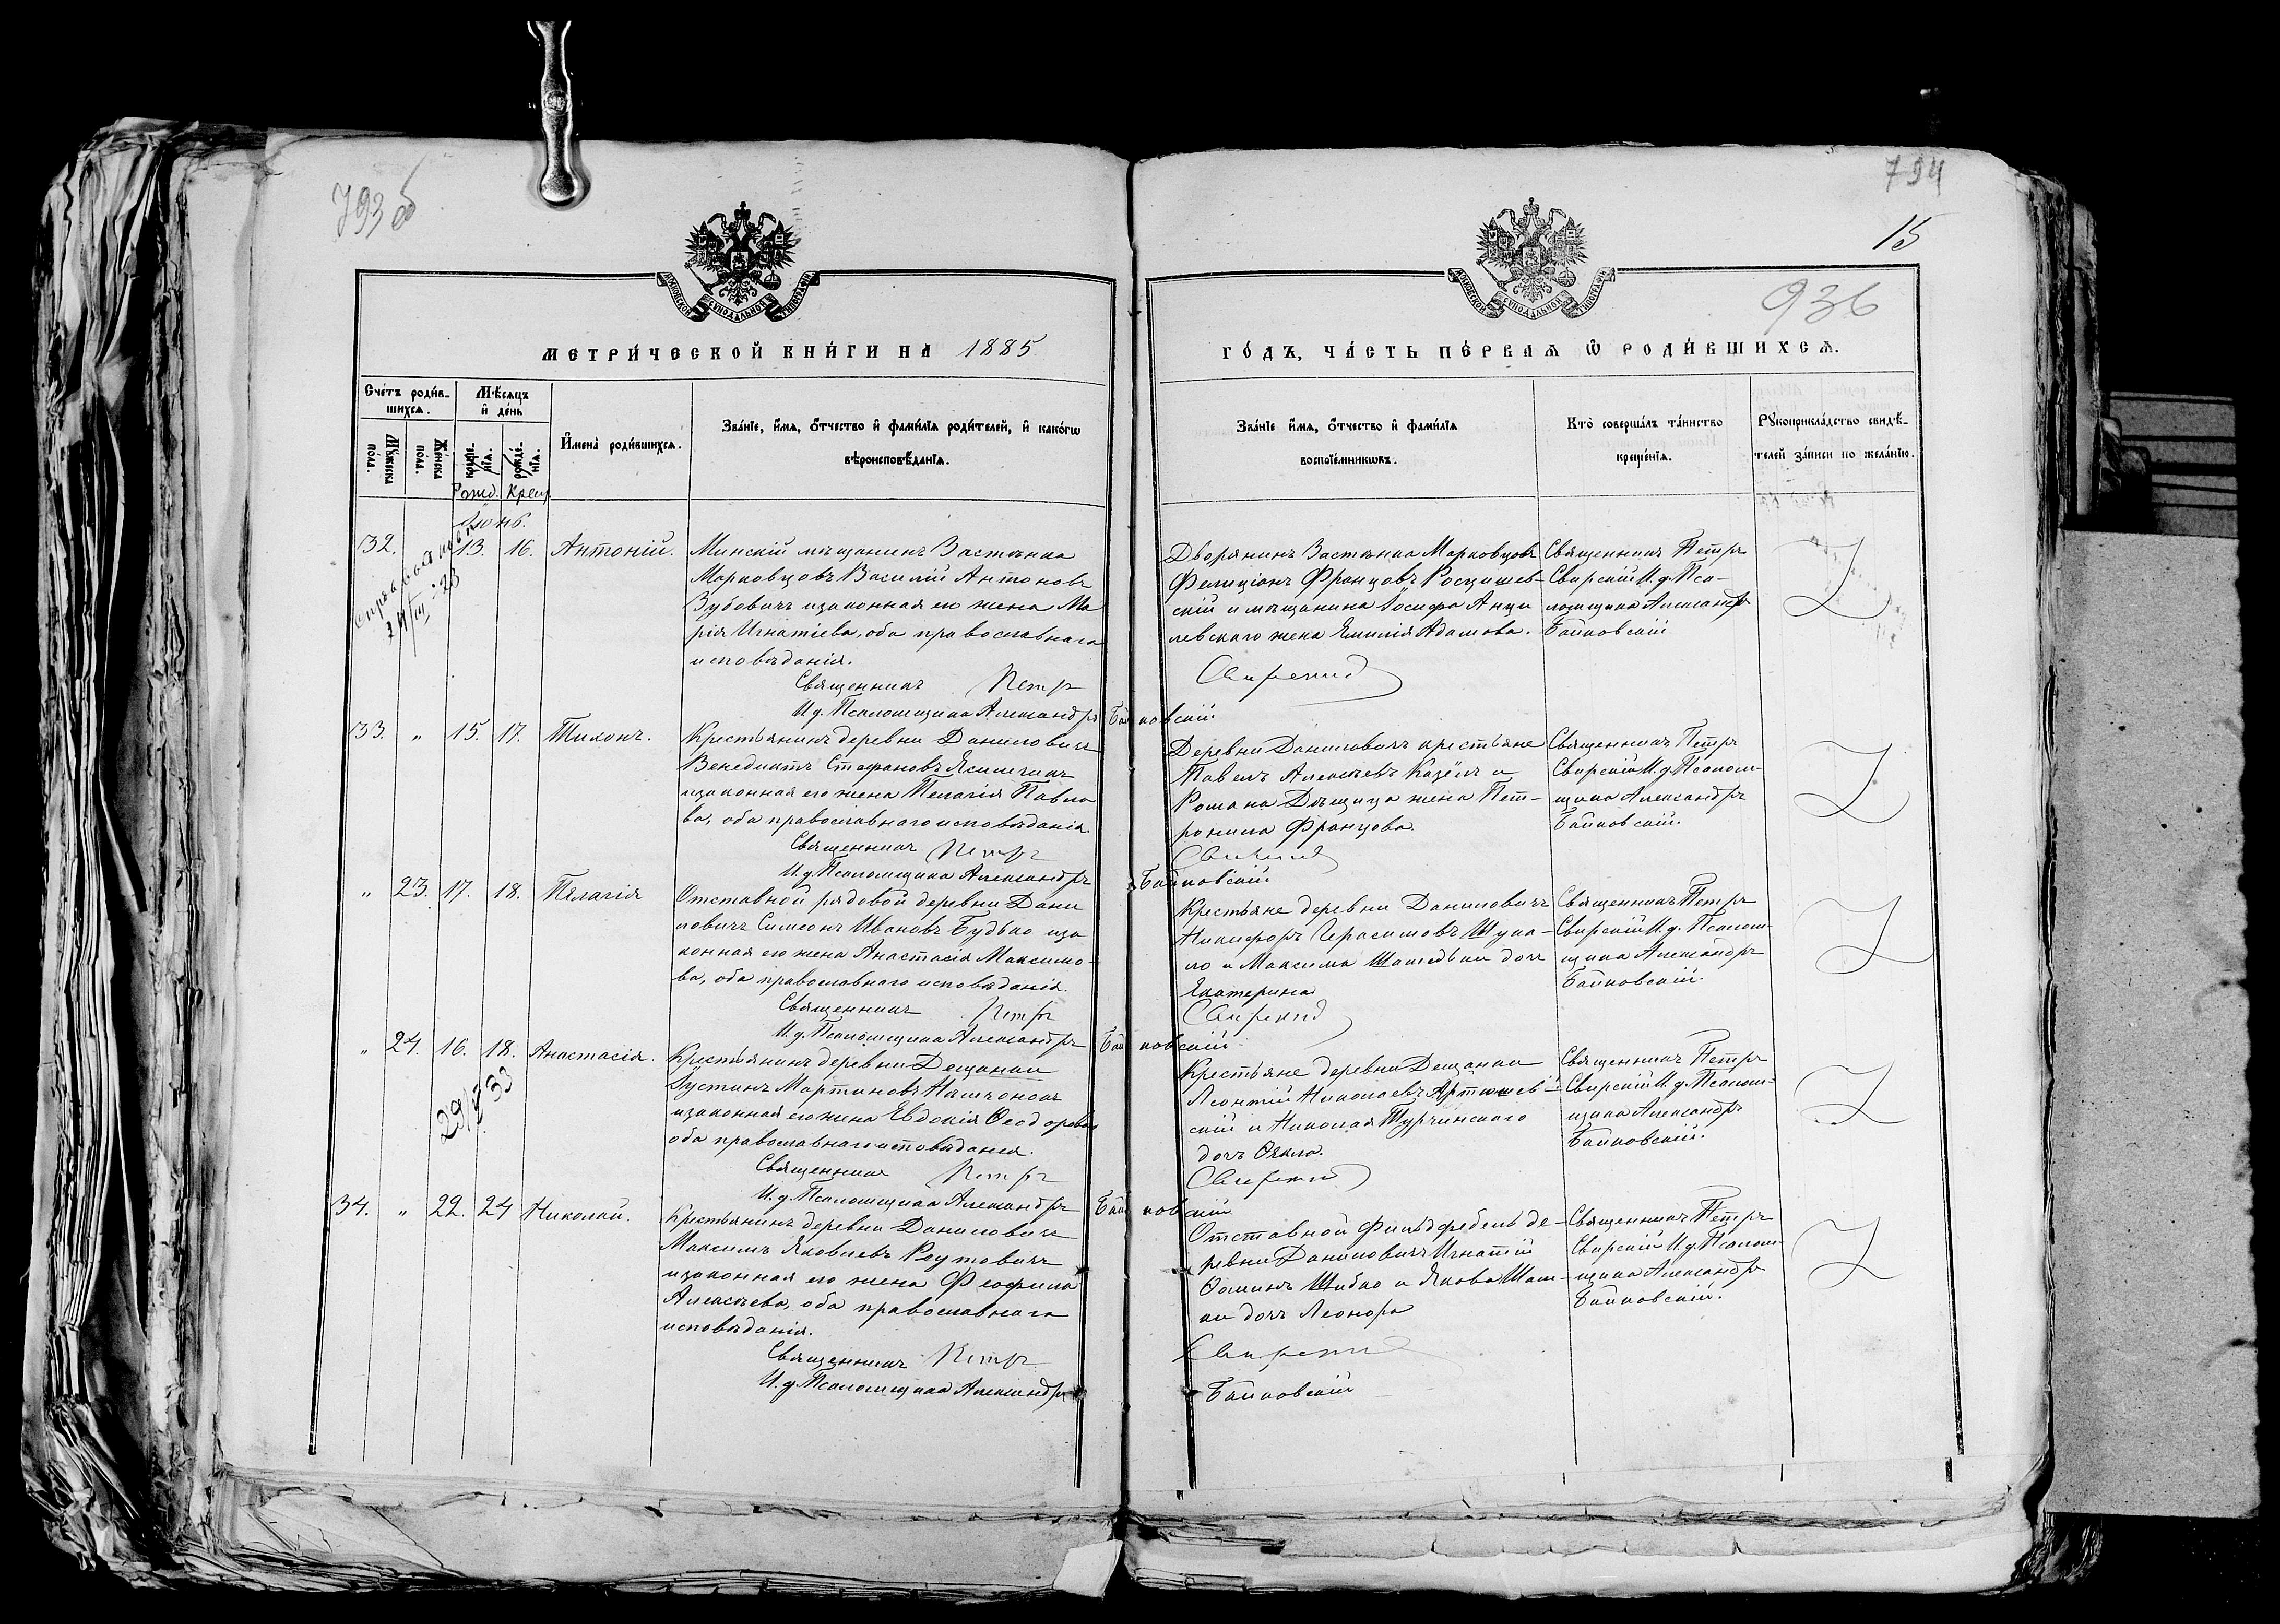 793 б
794
15
936
МОСКОВСКОЙ СѴНОДАЛЬНОЙ ТИПОГРАФІИ
МОСКОВСКОЙ СѴНОДАЛЬНОЙ ТИПОГРАФІИ
МЕТРИ́ЧЕСКОЙ КНИ́ГИ НА 1885
ГО́ДЪ, ЧА́СТЬ ПЕ́РВАѦ Ѡ҆ РОДИ́ВШИХСѦ.
Сче́тъ роди́в-
шихсѧ.
Мѣ́сѧцъ
и҆ де́нь
Мꙋ́жеска
по́ла.
Же́нска
по́ла.
креще́-
нїѧ.
рожде́-
нїѧ.
Рожд. Крещ.
И҆мена̀ роди́вшихсѧ.
Зва́нїе, и҆́мѧ, ѻ҆́тчество и҆ фами́лїѧ роди́телей, и҆ како́гѡ
вѣроисповѣ́данїѧ.
Зва́нїе и҆́мѧ, ѻ҆́тчество и҆ фами́лїѧ
воспрїе́мникѡвъ.
Кто̀ соверша́лъ та́инство
креще́нїѧ.
Рꙋкоприкла́дство свидѣ́-
телей за́писи по жела́нїю.
Іюнь.
32. 13. 16. Антоній.
Минскій мѣщанинъ Застѣнка
Марковцовъ Василій Антоновъ
Зубовичъ изаконная его жена Ма
рія Игнатіева, оба православнаго
исповѣданія.
Священникъ Петръ
И.д. Псаломщика Александръ Байковскій
Дворянинъ Застѣнка Марковцовъ
Фелиціонъ Францовъ Росцишев-
скій и мѣщанина Іосифа Анци
левскаго жена Эмилія Адамова.
Свирскій
Священникъ Петръ
Свирскій И.д. Пса-
ломщика Александръ
Байковскій
33. " 15. 17. Тихонъ.
Крестьянинъ деревни Даниловичъ
Венедиктъ Стефановъ
изаконная его жена Пелагія Павло
ва, оба православнаго исповѣданія
Священникъ Петръ
И.д. Псаломщика Александръ Байковскій
Деревни Даниловичъ крестьяне
Павелъ Алексѣевъ Казёлъ и
Романа жена Пет-
ронила Францова.
Свирскій
Священникъ Петръ
Свирскій И.д. Псалом-
щика Александръ
Байковскій.
" 23. 17. 18. Пелагія
Отставной рядовой деревни Дани
ловичъ Симеонъ Ивановъ Будько иза
конная его жена Анастасія Максимо-
ва, оба православнаго исповѣданія.
Священникъ Петръ
И.д. Псаломщика Александръ Байковскій
Крестьяне деревни Даниловичъ
Никифоръ Герасимовъ Шука-
ло и Максима дочь
Екатерина
Свирскій
Священникъ Петръ
Свирскій И.д. Псалом-
щика Александръ
Байковскій.
" 24. 16. 18. Анастасія.
Крестьянинъ деревни Дещанки
Іустинъ Мартиновъ
изаконная его жена Евдокія Ѳеодорова
оба православнаго исповѣданія.
Священникъ Петръ
И.д. Псаломщика Александръ Байковскій
Крестьяне деревни Дещанки
Леонтій Николаевъ Артишев-
скій и Николая Турчинскаго
дочь Ѳекла.
Свирскій
Священникъ Петръ
Свирскій И.д. Псалом-
щика Александръ
Байковскій.
34. " 22. 24 Николай.
Крестьянинъ деревни Даниловичъ
Максимъ Яковлевъ Реутовичъ
изаконная его жена Феофила
Алексѣева, оба православнаго
исповѣданія.
Священникъ Петръ
И.д. Псаломщика Александръ
Отставной Фильдфебель де-
ревни Даниловичъ Игнатій
Ѳоминъ Шибко и Якова Шам-
ки дочь Леонора
Свирскій
Байковскій
Священникъ Петръ
Свирскій И.д. Псалом-
щика Александръ
Байковскій.